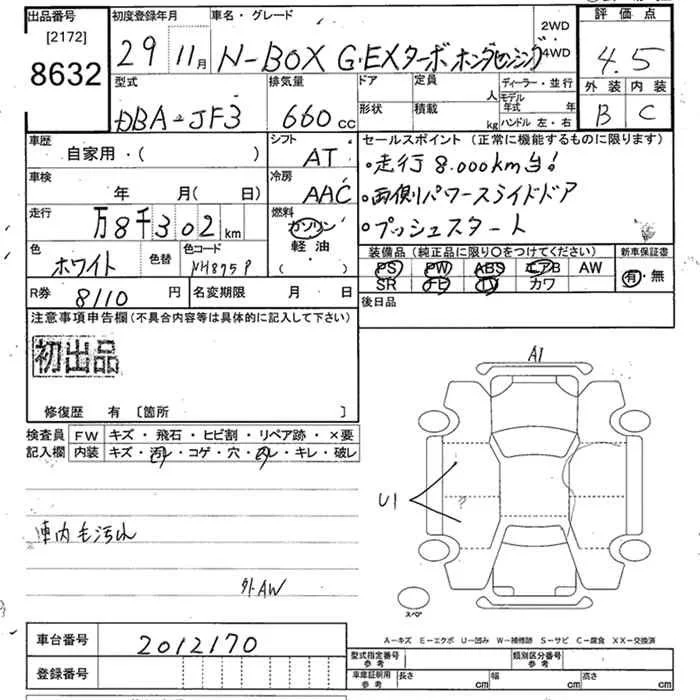 出品番号
[2172]
8632
初度登録年月
29 11月
車名・グレード
N-BOX G・EXターボホンダセンシング
2WD
4WD
評価点
4.5
外装 内装
B C
型式
DBA-JF3
排気量
660cc
ドア
形状
定員
人
積載
kg
ディーラー・並行
モデル年式 年
ハンドル 左・右
車歴
自家用・( )
シフト
AT
車検
年 月( 日)
冷房
AAC
走行
万8千302km
燃料
ガソリン
軽油・
( )
色
ホワイト
色替
色コード
NH875P
R券 8110 円
名変期限 月 日
セールスポイント(正常に機能するものに限ります)
・走行8.000km台!
・両側パワースライドドア
・プッシュスタート
装備品(純正品に限り○をつけてください)
PS PW ABS エアB AW
SR ナビ TV カワ
新車保証書
有・無
後日品
注意事項申告欄(不具合内容等は具体的に記入して下さい)
初出品
修復歴 有 〔箇所 〕
検査員記入欄
FW キズ・飛石・ヒビ割・リペア跡・×要
内装 キズ・汚レ・コゲ・穴・スレ・キレ・破レ
車内毛汚れ
外AW
A1
U1
?
スペア
A-キズ E-エクボ U-凹み W-補修跡 S-サビ C-腐食 XX-交換済
車台番号 2012170
登録番号
型式指定番号 参考
類別区分番号 参考
車庫証明用 参考
長さ cm 幅 cm 高さ cm